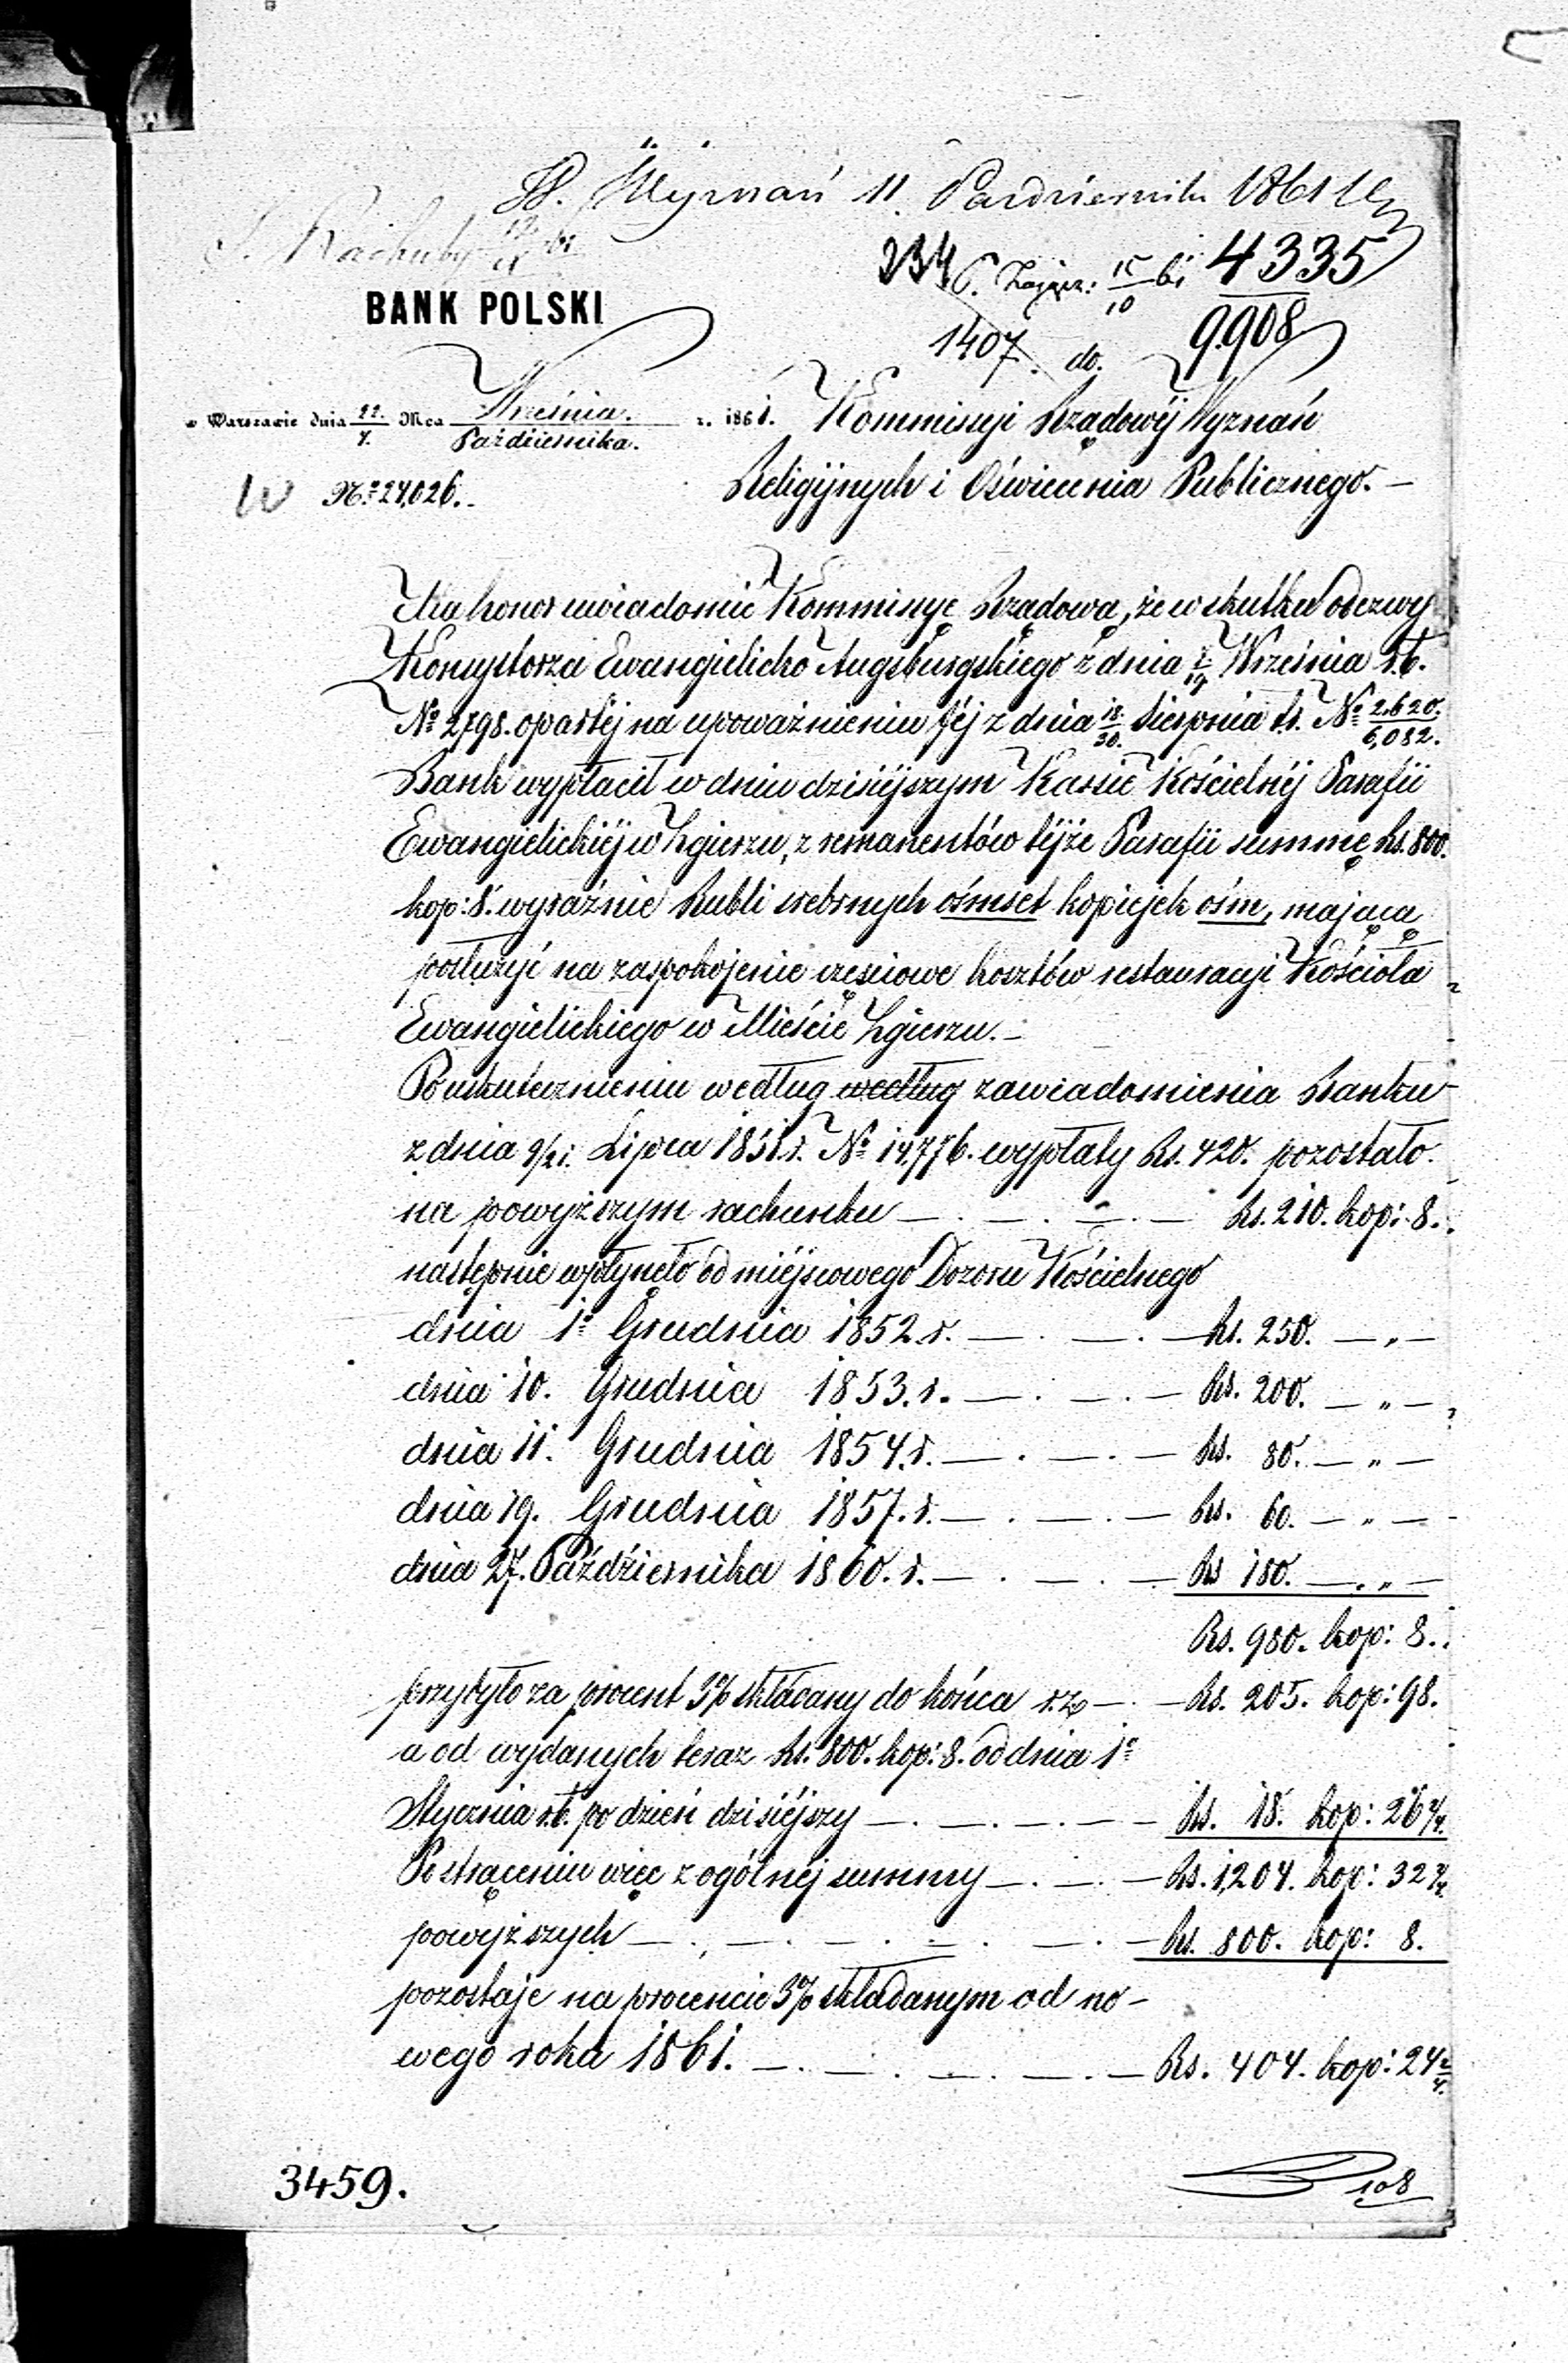 W. Wyznań 11. Październik 1861
S. Rachuby
234 S. Zającz: 15/10 61 4335
BANK POLSKI
1407. do. 9908
w Warszawie dnia 22./7. Mca Września./Października. r. 1861. Kommissyi Rządowéj Wyznań
W No 24,026.
Religijnych i Oświecenia Publicznego.—
Ma honor uwiadomić Kommissyę Rządową, że w skutku odezwy
Konsystorza Ewangielicko Augsburgskiego z dnia 7/19 Września r.b.
No 2798. opartéj na upoważnieniu Jéj z dnia 18/30. Sierpnia t.r. No 2.620./6,082.
Bank wypłacił w dniu dzisiéjszym Kassie Kościelnéj Parafii
Ewangielickiéj w Zgierzu, z remanentów téjże Parafii summę Rs. 800.
kop: 8. wyraźnie Rubli srebrnych ośmset kopiejek ośm, mającą
posłużyć na zaspokojenie częściowe kosztów restauracyi Kościoła
Ewangielickiego w Mieście Zgierzu.—
Po uskutecznieniu według według zawiadomienia Banku
z dnia 9/21. Lipca 1851.r. No 14,776. wypłaty Rs. 420. pozostało
na powyższym rachunku — . — . — . — Rs. 210. kop: 8.
następnie wpłynęło od miéjscowego Dozoru Kościelnego
dnia 1o Grudnia 1852.r. — . — . — Rs. 250. — „ —
dnia 10. Grudnia 1853.r. — . — . — Rs. 200. — „ —
dnia 11. Grudnia 1854.r. — . — . — Rs. 80. — „ —
dnia 19. Grudnia 1857.r. — . — . — Rs. 60. — „ —
dnia 27. Października 1860.r. — . — . — Rs 180. — „ —
Rs. 980. kop: 8.
przybyło za procent 3% składany do końca r.z. — . — Rs. 205. kop: 98.
a od wydanych teraz Rs. 800. kop: 8. od dnia 1o
Stycznia r.b. po dzień dzisiéjszy — . — . — . — Rs. 18. kop: 26 2/4.
Po strąceniu więc z ogólnéj summy — . — . — Rs. 1,204. kop: 32 2/4.
powyższych — . — . — . — . — . — Rs. 800. kop: 8.
pozostaje na procencie 3% składanym od no-
wego roku 1861. — . — . — . — . — Rs. 404. kop: 24 2/4.
3459.
108